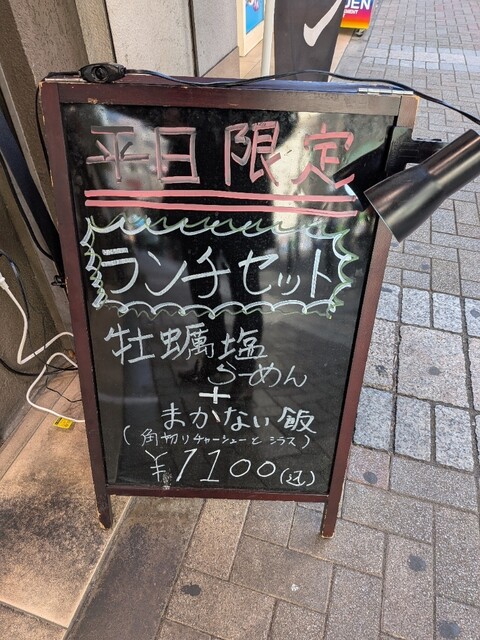 平日限定
ランチセット
牡蠣塩
らーめん
+
まかない飯
(角切りチャーシューとシラス)
¥1100(込)